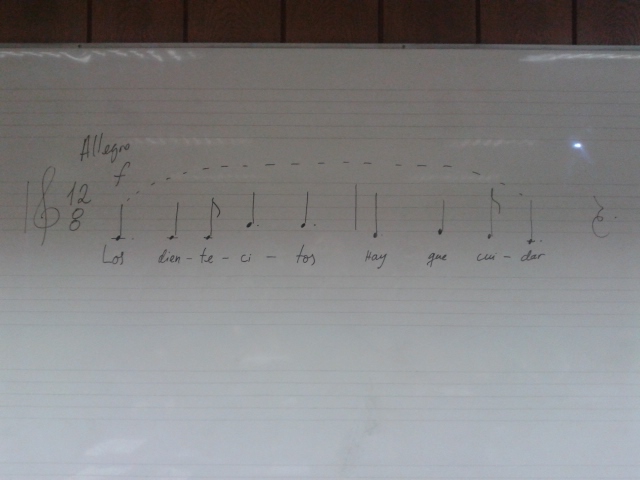 Allegro
f
12
8
Los dien - te - ci - tos Hay que cui - dar